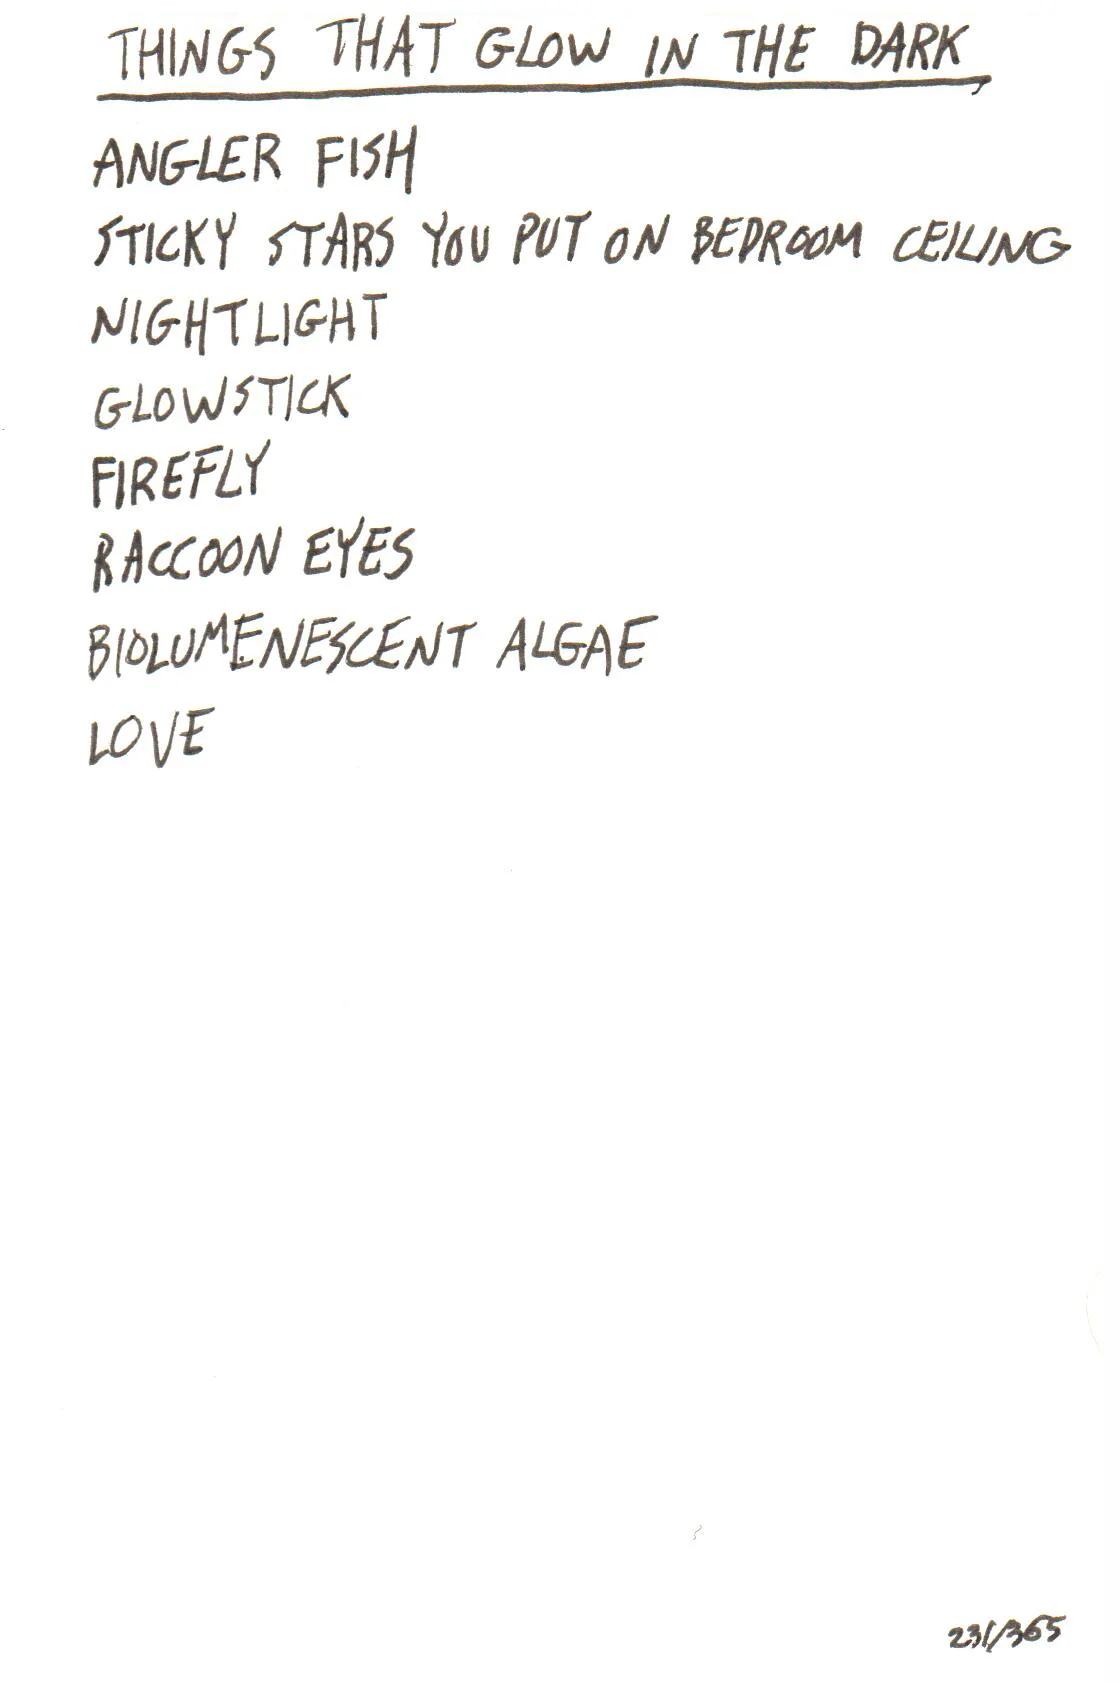 THINGS THAT GLOW IN THE DARK
ANGLER FISH
STICKY STARS YOU PUT ON BEDROOM CEILING
NIGHTLIGHT
GLOWSTICK
FIREFLY
RACCOON EYES
BIOLUMENESCENT ALGAE
LOVE
231/365